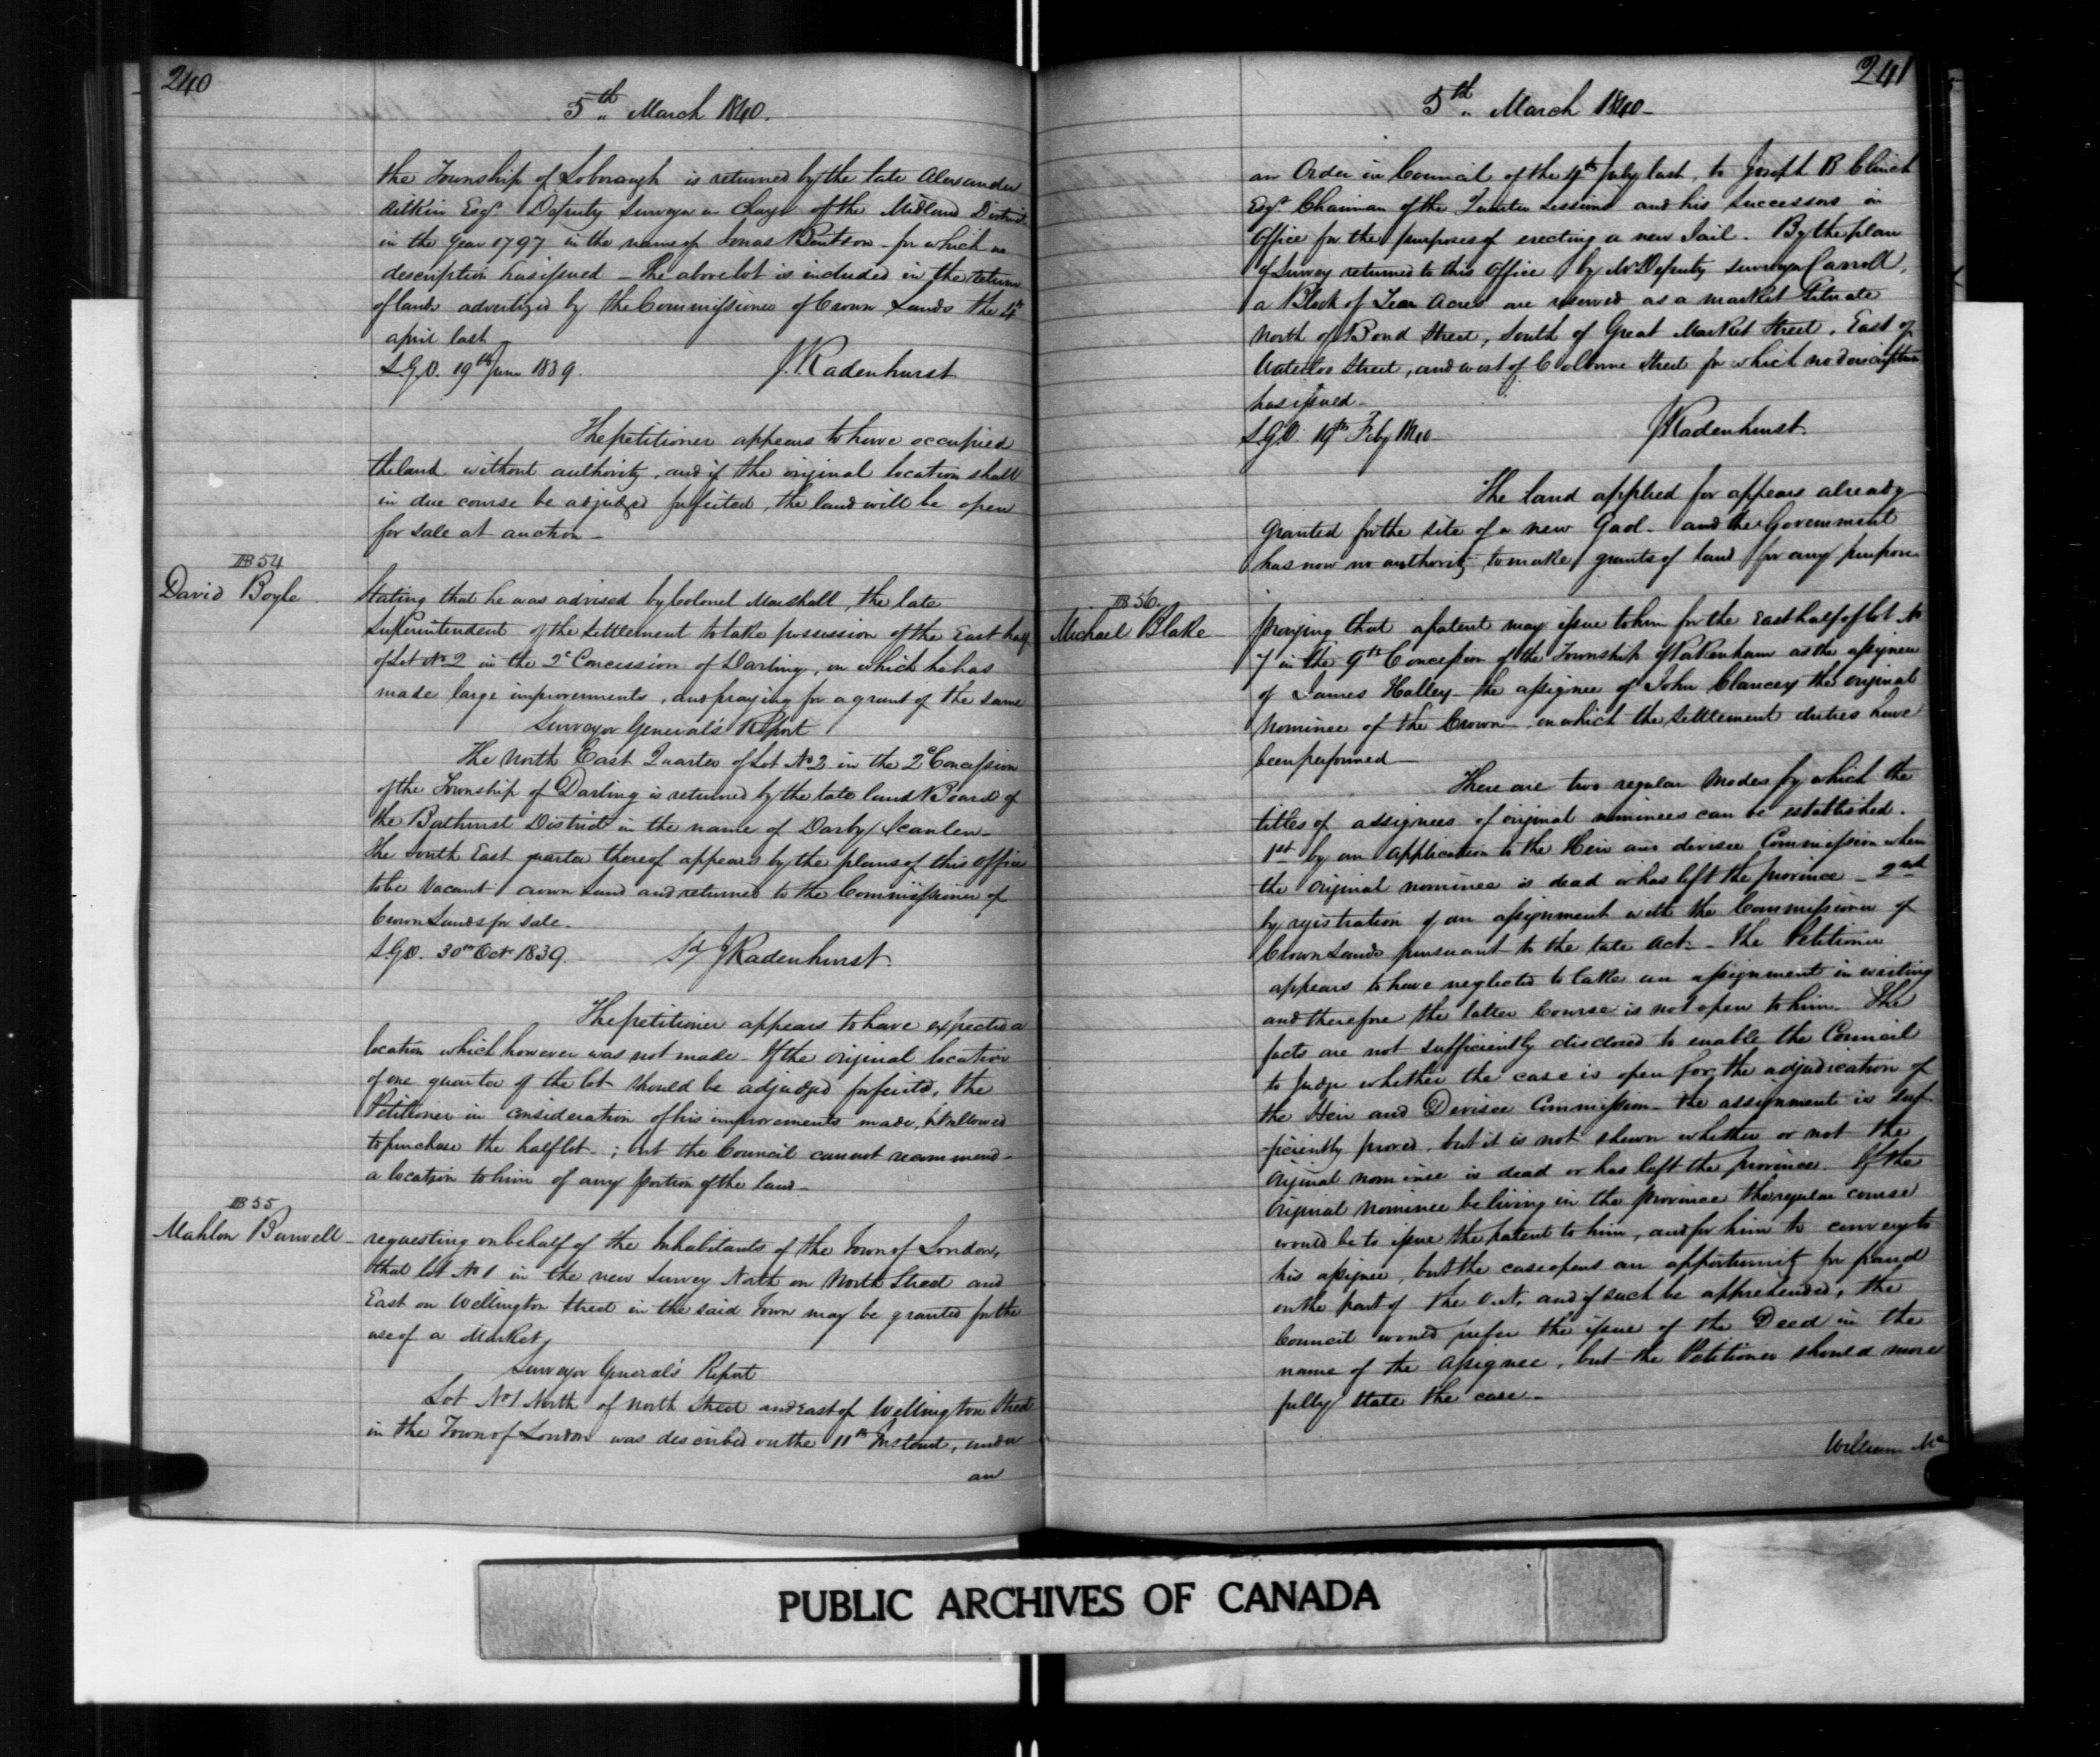 240
5th March 1840.
the Township of Loborough is returned by the late Alexander
Aitkin Esqr. Deputy Surveyor in charge of the Midland District
in the year 1797 in the name of Jonas Bentson for which no
description has issued _ The above lot is included in the return
of lands advertized by the Commissioner of Crown Lands the 4th
april last
S.G.O. 19th June 1839. J. Radenhurst
The petitioner appears to have occupied
the land without authority, and if the original location shall
in due course be adjudged forfeited, the land will be open
for sale at auction _
B 54
David Boyle
Stating that he was advised by Colonel Marshall, the late
Superintendent of the Settlement to take possession of the East half
of Lot No 2 in the 2d Concession of Darling, on which he has
made large improvements, and praying for a grant of the same
Surveyor General's Report
The North East Quarter of Lot No 2 in the 2d Concession
of the Township of Darling is returned by the late land Board of
the Bathurst District in the name of Darby Scanlen _
The South East quarter thereof appears by the plans of this office
to be vacant crown land and returned to the Commissioner of
Crown Lands for sale.
S.G.O. 30th Octr 1839. Sd/ J Radenhurst.
The petitioner appears to have expected a
location which however was not made _ If the original location
of one quarter of the lot should be adjudged forfeited, the
Petitioner in consideration of his improvements made, allowed
to purchase the half lot _ ; but the Council cannot recommend
a location to him of any portion of the land _
B 55
Mahlon Burwell _
requesting on behalf of the Inhabitants of the Town of London,
that lot No 1 in the new Survey North on North Street and
East on Wellington Street in the said Town may be granted for the
use of a Market,
Surveyor General's Report
Lot No 1 North of North Street and East of Wellington Street
in the Town of London was described on the 11th Instant, under
an
241
5th March 1840 _
an Order in Council of the 4th July last, to Joseph B Clench
Esqr. Chairman of the Quarter Sessions and his successors in
Office for the purposes of erecting a new Jail. By the plan
of Survey returned to this Office by Mr Deputy Surveyor Carroll,
a Block of Acres are reserved as a market Situate
North of Bond Street, South of Great Market Street, East of
Waterloo Street, and west of Colborne Street for which no description
has issued _
S.G.O. 19th Feby 1840 J Radenhurst.
The land applied for appears already
granted for the site of a new Gaol _ and the Government
has now no authority to make grants of land for any purpose
B 56.
Michael Blake
Praying that a patent may issue to him for the East half of lot No
7 in the 9th Concession of the Township of Pakenham as the assignee
of James Halley _ the assignee of John Clancey the original
nominee of the Crown _ on which the settlement duties have
been performed _
There are two regular modes by which the
titles of assignees of original nominees can be established.
1st by an application to the Heir and devisee Commission when
the original nominee is dead or has left the province _ 2nd
by registration of an assignment with the Commissioner of
Crown Lands pursuant to the late Act _ The Petitioner
appears to have neglected to take an assignment in writing
and therefore the latter Course is not open to him. The
facts are not sufficiently disclosed to enable the Council
to judge whether the case is open for the adjudication of
the Heir and Devisee Commission _ the assignment is suf-
-ficiently proved, but it is not shewn whether or not the
original nominee is dead or has left the province. If the
original nominee be living in the province the regular course
would be to issue the patent to him, and for him to convey to
his assignee, but the case opens an opportunity for fraud
on the part of the O.N. and if such be apprehended, the
Council would prefer the issue of the Deed in the
name of the assignee, but the Petitioner should more
fully state the case _
William Mc
PUBLIC ARCHIVES OF CANADA